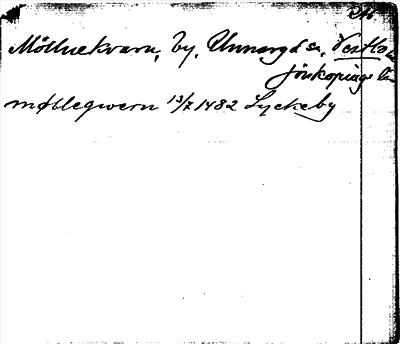 Möllnekvarn, by, Unnaryd sn, Västbo
Jönköpings län
møllegwern 13/7 1482 Lyckeby